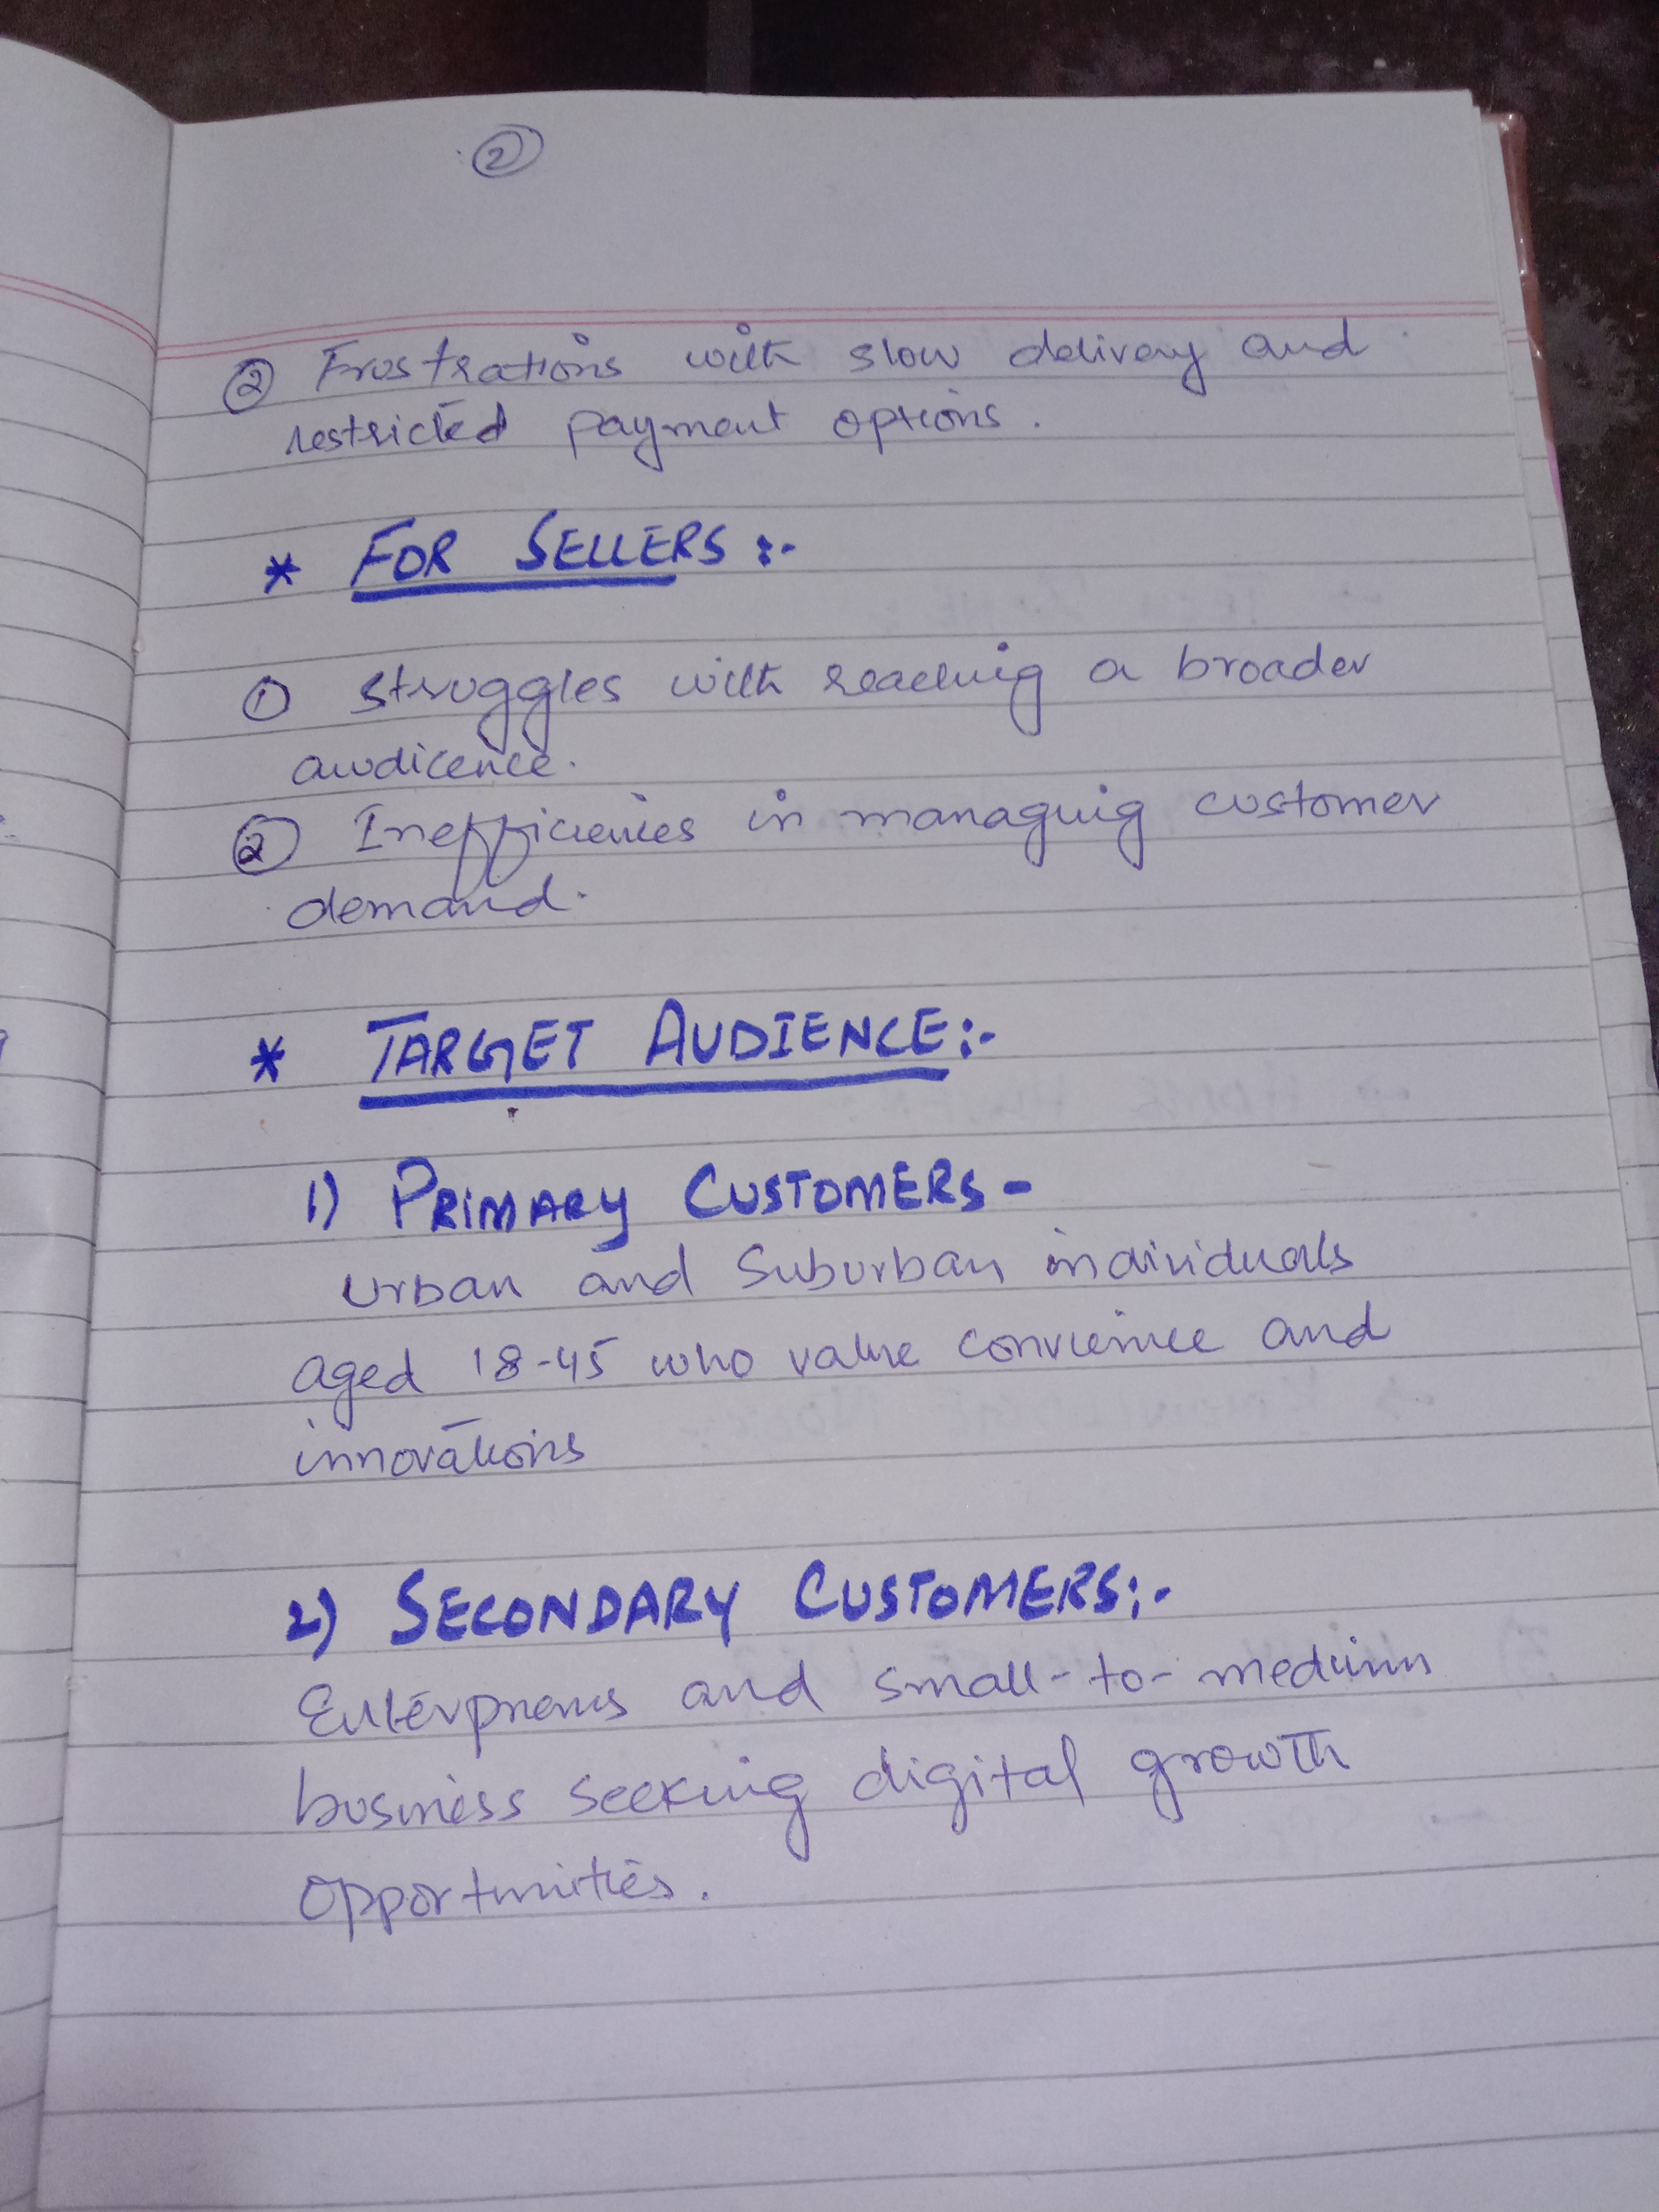 ②
② Frustrations with slow delivery and
restricted payment options.
* FOR SELLERS :-
① struggles with reaching a broader
audicence.
② Inefficiencies in managing customer
demand.
* TARGET AUDIENCE :-
1) PRIMARY CUSTOMERS -
Urban and Suburban individuals
aged 18-45 who value convience and
innovations
2) SECONDARY CUSTOMERS :-
and small-to-medium
business seeking digital growth
opportunities.